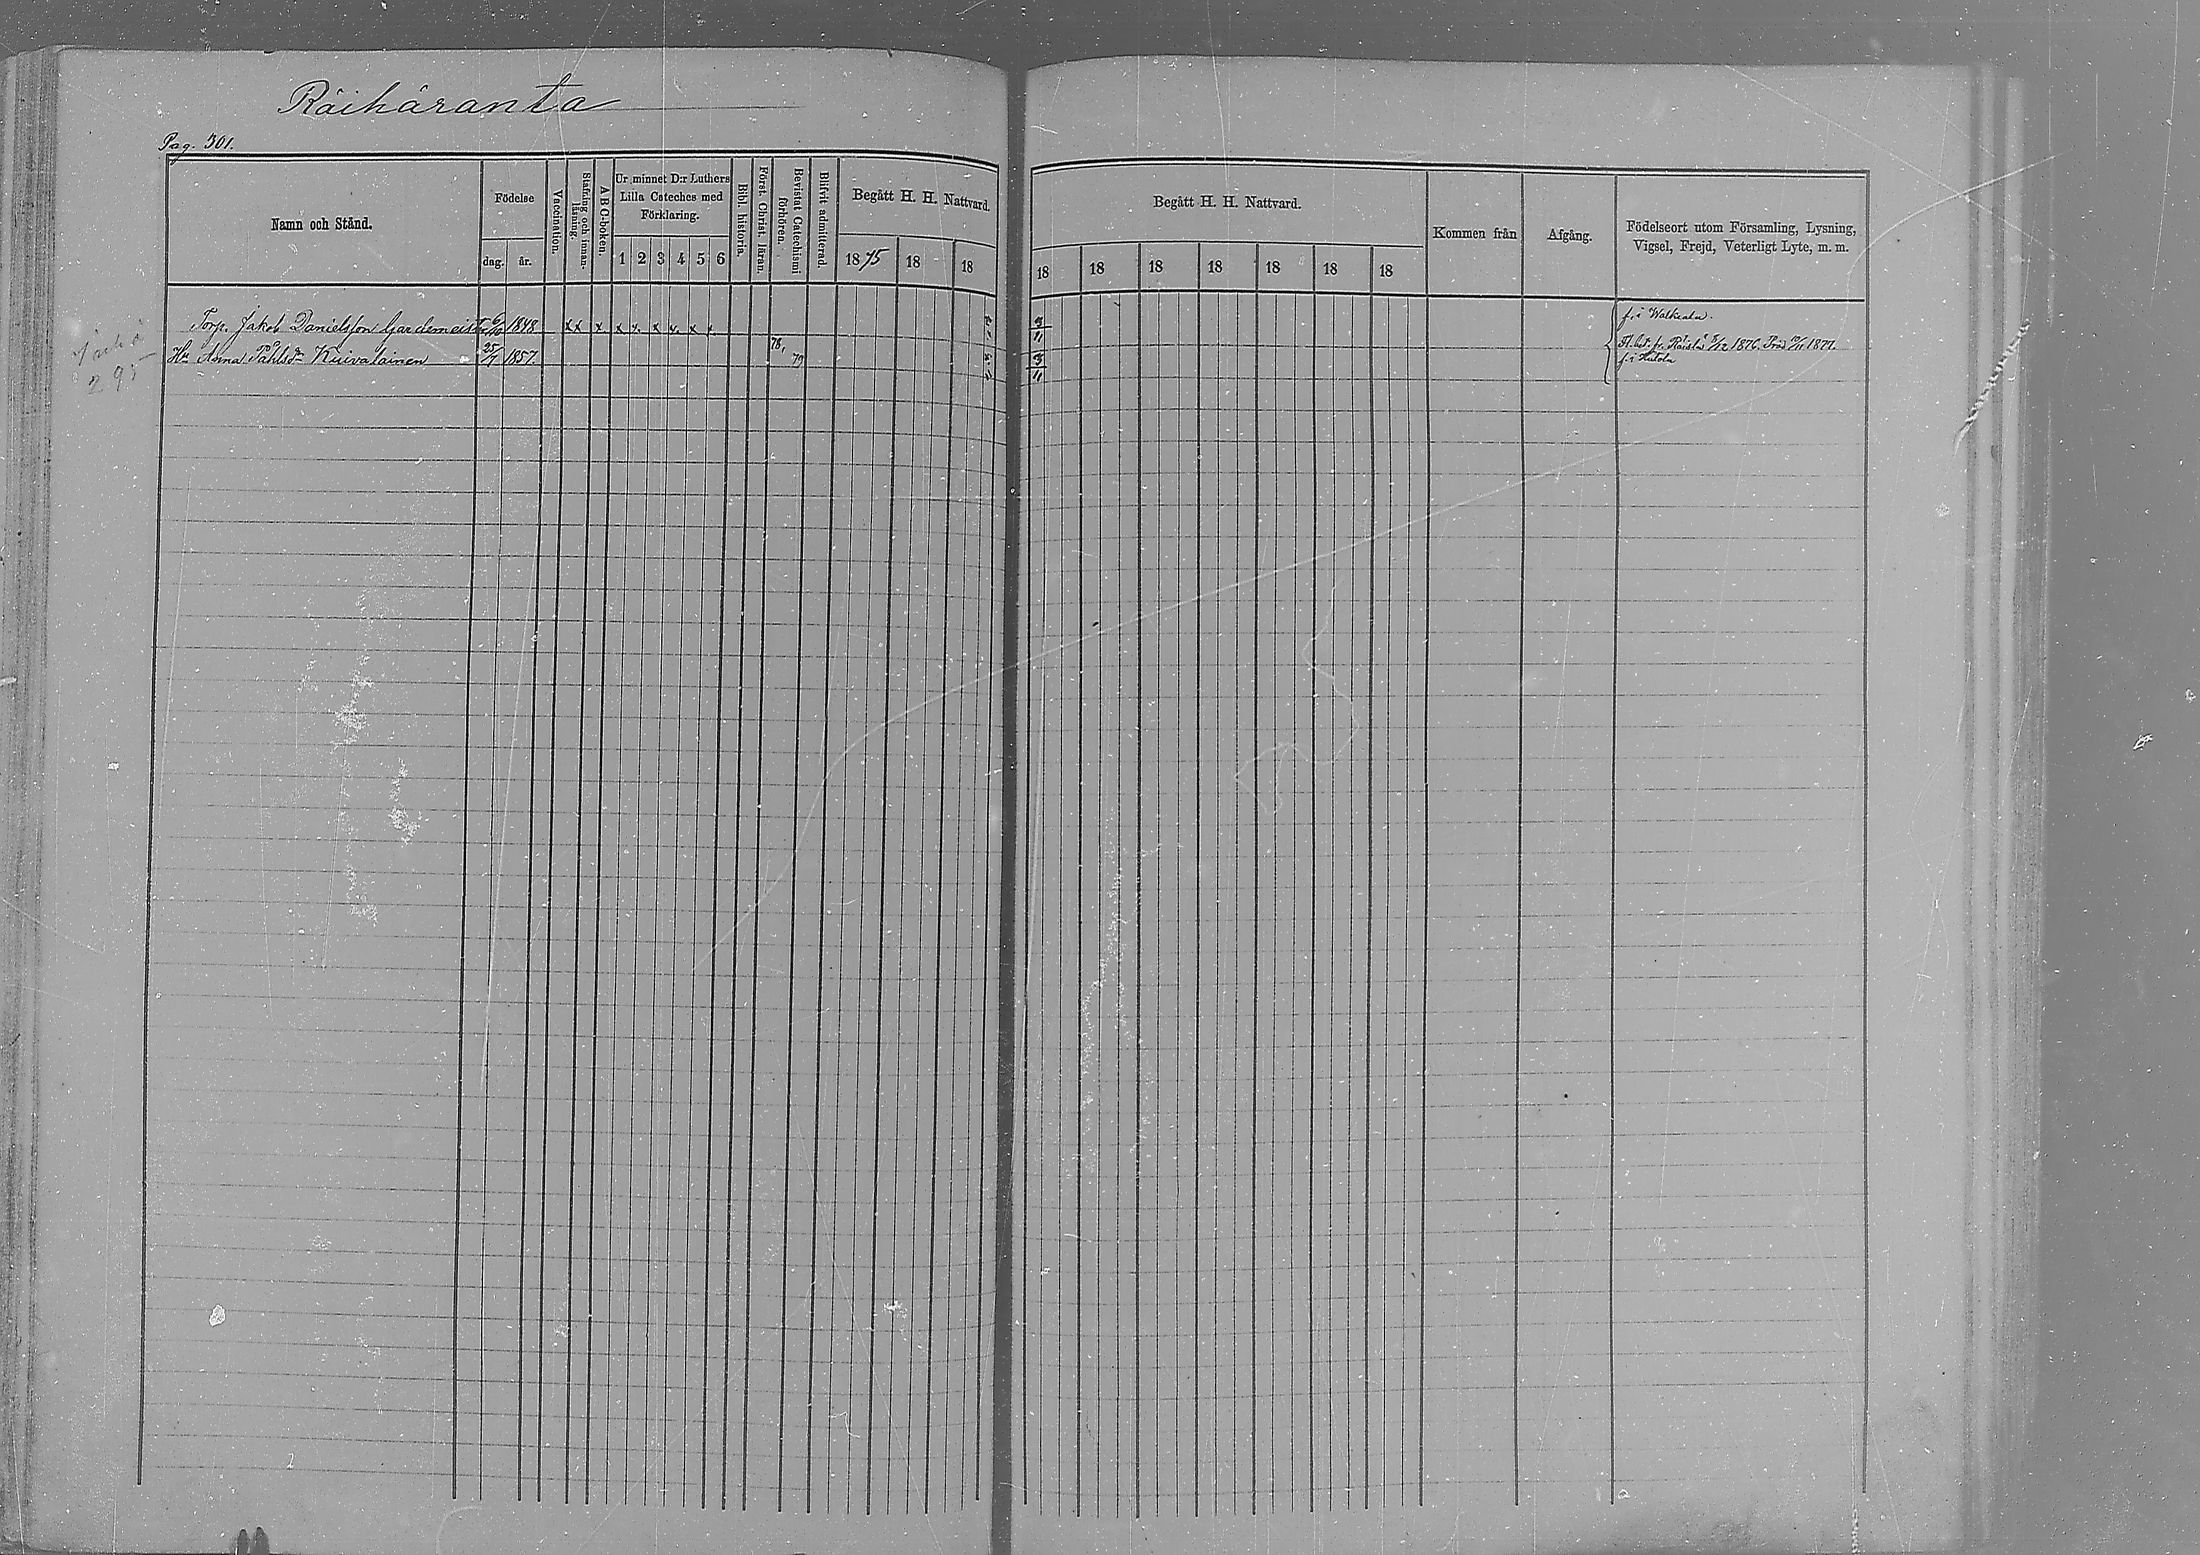 Räihäranta
Pag. 301.
Namn och Stånd.
Födelse
dag. år.
Vaccination.
Stafning och innanläsning.
ABC-boken.
Ur minnet D:r Luthers
Lilla Cateches med
Förklaring.
1 2 3 4 5 6
Bibl. historia.
Först. Christ. läran.
Bevistat Catechismi förhören.
Blifvit admitterad.
Begått H. H. Nattvard.
1875 18 18
Begått H. H. Nattvard.
18 18 18 18 18 18 18
Kommen från
Afgång.
Födelseort utom Församling, Lysning,
Vigsel, Frejd, Veterligt Lyte, m. m.
Torp. Jakob Danielsson Gardemeister 6/10 1848 x x x x x x x x x f. i Walkeala.
78, Fl. bet. fr. Räisälä 5/12 1876.
Hu Anna Påhlsdr Kuivalainen 25/7 1857. 79 f. i Hiitola
295